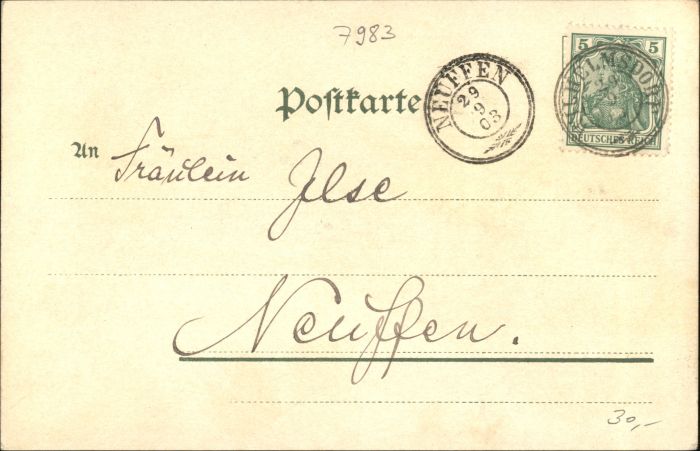 7983
5 5
WILHELMSDORF
DEUTSCHES REICH
NEUFFEN
29
9
03
Postkarte
An Fräulein Ilse
Neuffen.
30,-